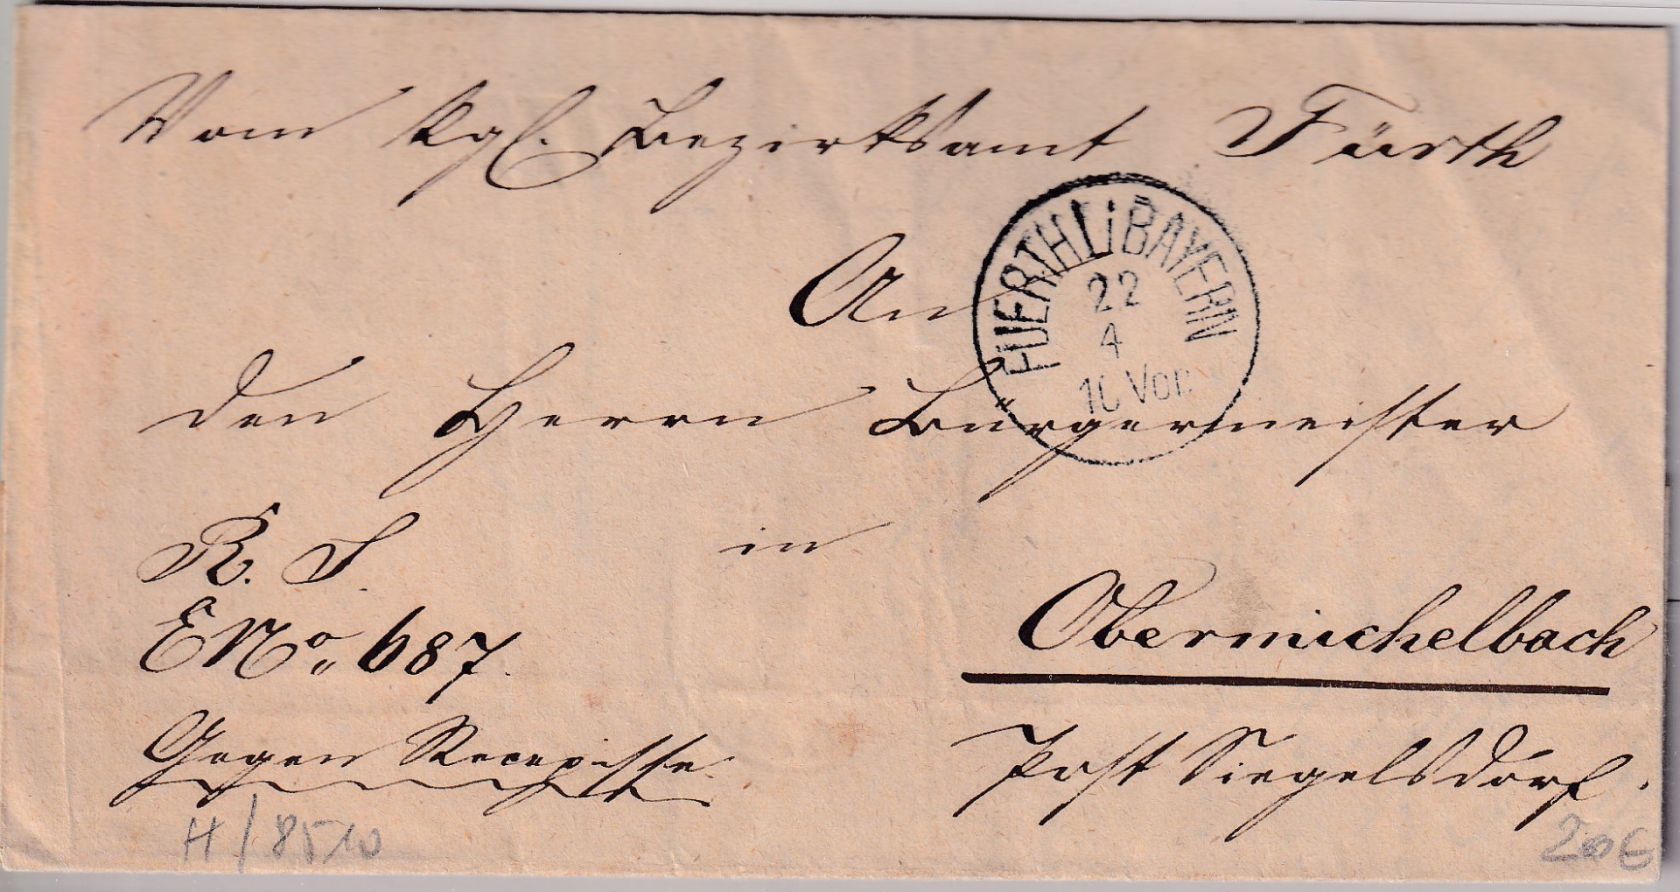 Vom Kgl. Bezirksamt Fürth
FUERTH I. BAYERN
22
4
10 Vor
An
den Herrn Bürgermeister
R. S.
in
E No 687.
Obermichelbach
Gegen Recepisse.
Post Siegelsdorf.
H/8510
20€